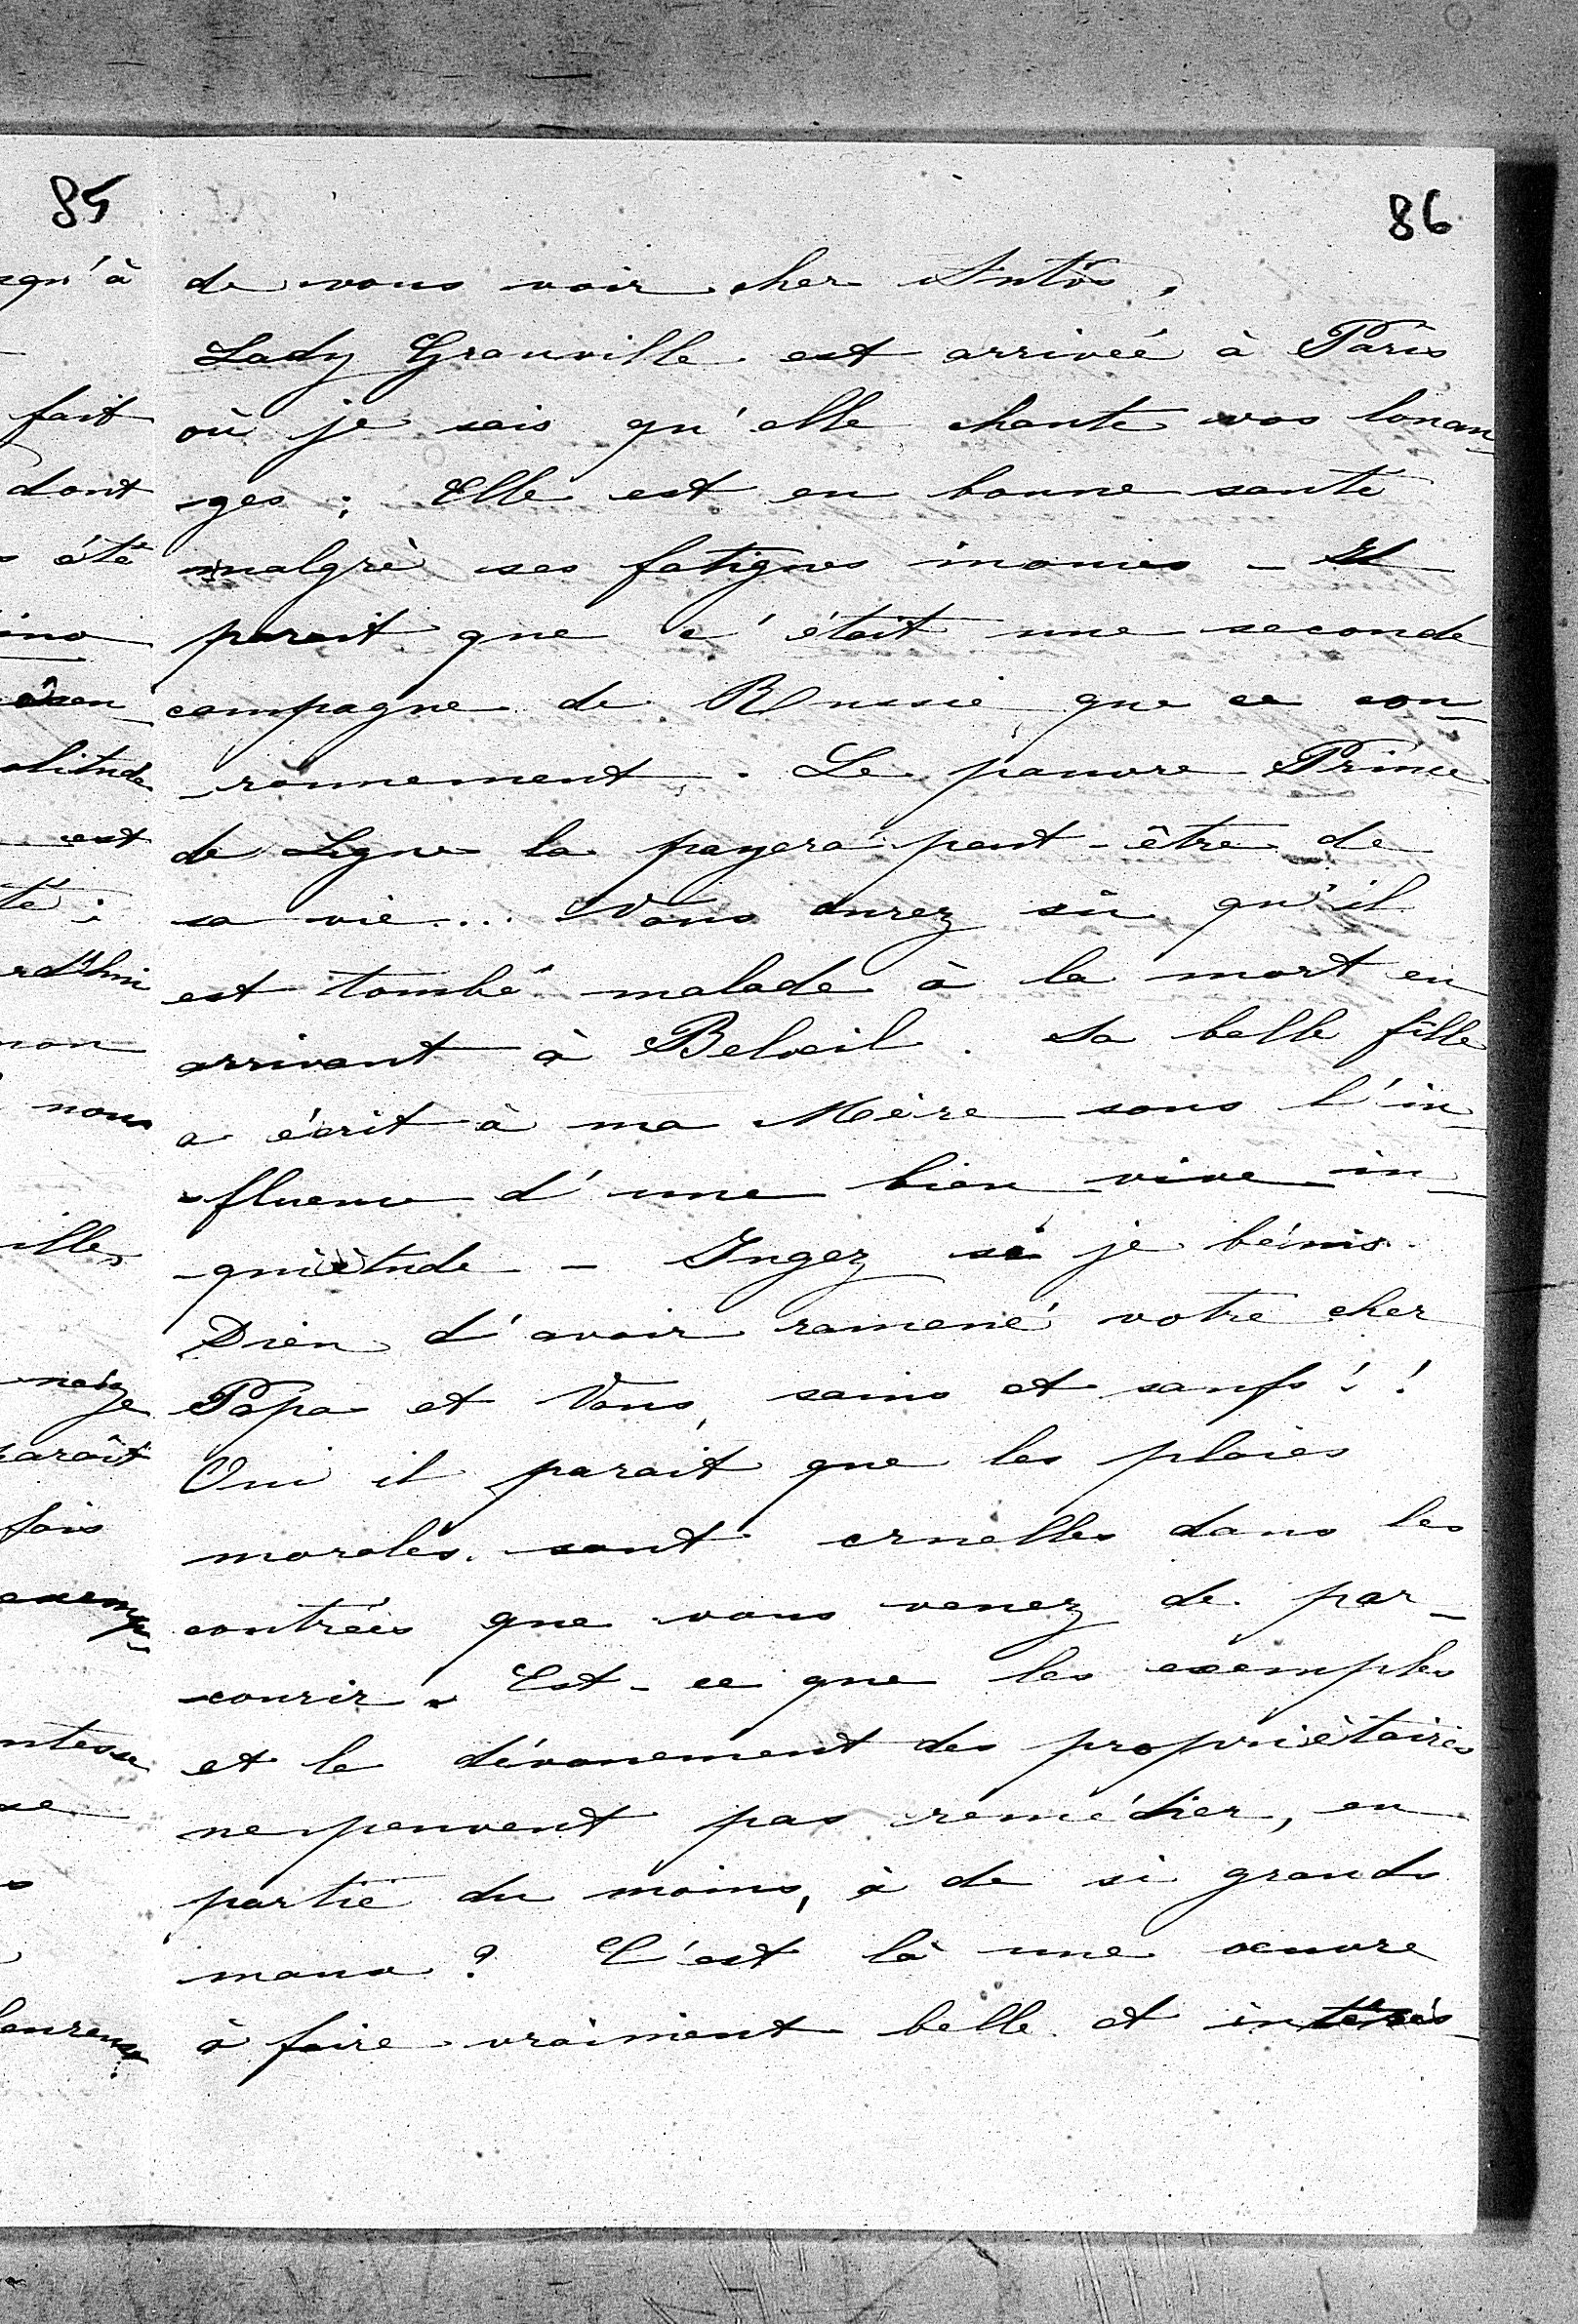 85
86
de vous voir cher Antös,
Lady Granville est arrivée à Paris
où je sais qu'elle chante vos louan-
-ges; Elle est en bonne santé
malgré ses fatigues inouies - Il
parait que c'était une seconde
campagne de Russie que ce cou-
-ronnement. Le pauvre Prince
de Ligne la payera peut-être de
sa vie... Vous aurez sû qu'il
est tombé malade à la mort en
arrivant à Beloeil. Sa belle fille
a écrit à ma Mère sous l'in-
-fluence d'une bien vive in-
-quiètude - Jugez si je bénis
Dieu d'avoir ramené votre cher
Papa et Vous, sains et saufs!!
Oui il parait que les plaies
morales sont cruelles dans les
contrées que vous venez de par-
-courir. Est-ce que les exemples
et le dévouement des propriètaires
ne peuvent pas remédier, en
partie du moins, à de si grands
maux? C'est là une oeuvre
à faire vraiment belle et intérés-
squ'à
fait
dont
été
olitude
est
té;
rd'hui
mon
nous
ille,
neige
paraît
fois
exemp-
ntesse
se
heureux